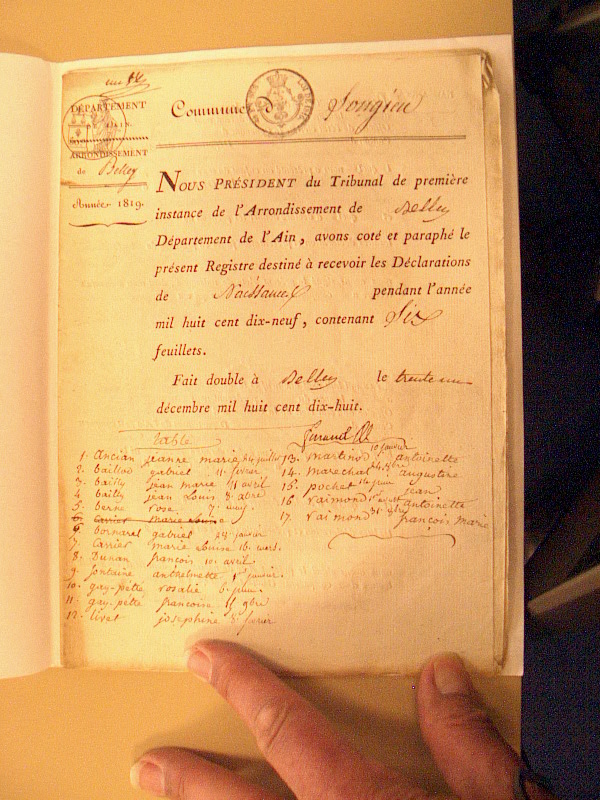 DÉPARTEMENT
ARRONDISSEMENT
de Belley
Année 1819.
Commune d Songieu
NOUS PRÉSIDENT du Tribunal de première
instance de l'Arrondissement de Belley
Département de l'Ain, avons coté et paraphé le
présent Registre destiné à recevoir les Déclarations
de Naissances pendant l'année
mil huit cent dix-neuf, contenant Six
feuillets.
Fait double à Belley le trente un
décembre mil huit cent dix-huit.
table
1. ancian jeanne marie 14 juillet
2. baillod gabriel 11. fevrier
3. bailly jean marie 11 avril
4. bailly jean Louis 8. 9bre
5. berne rose. 7.
6. Carrier marie Louise
6 bornarel gabriel 28 janvier
7. Carrier marie Louise 16. mars.
8. Dunan françois 10. avril
9. fontaine anthelmette 1er janvier.
10. gay-pette rosalie 6. juin.
11. gay-pette francoise 15 9bre
12. livet josephine 8. fevrier
13. martinod 10 janvier antoinette
14. marechal augustine
15. pochet jean
16 raimond antoinette
17. raimond 31 françois marie